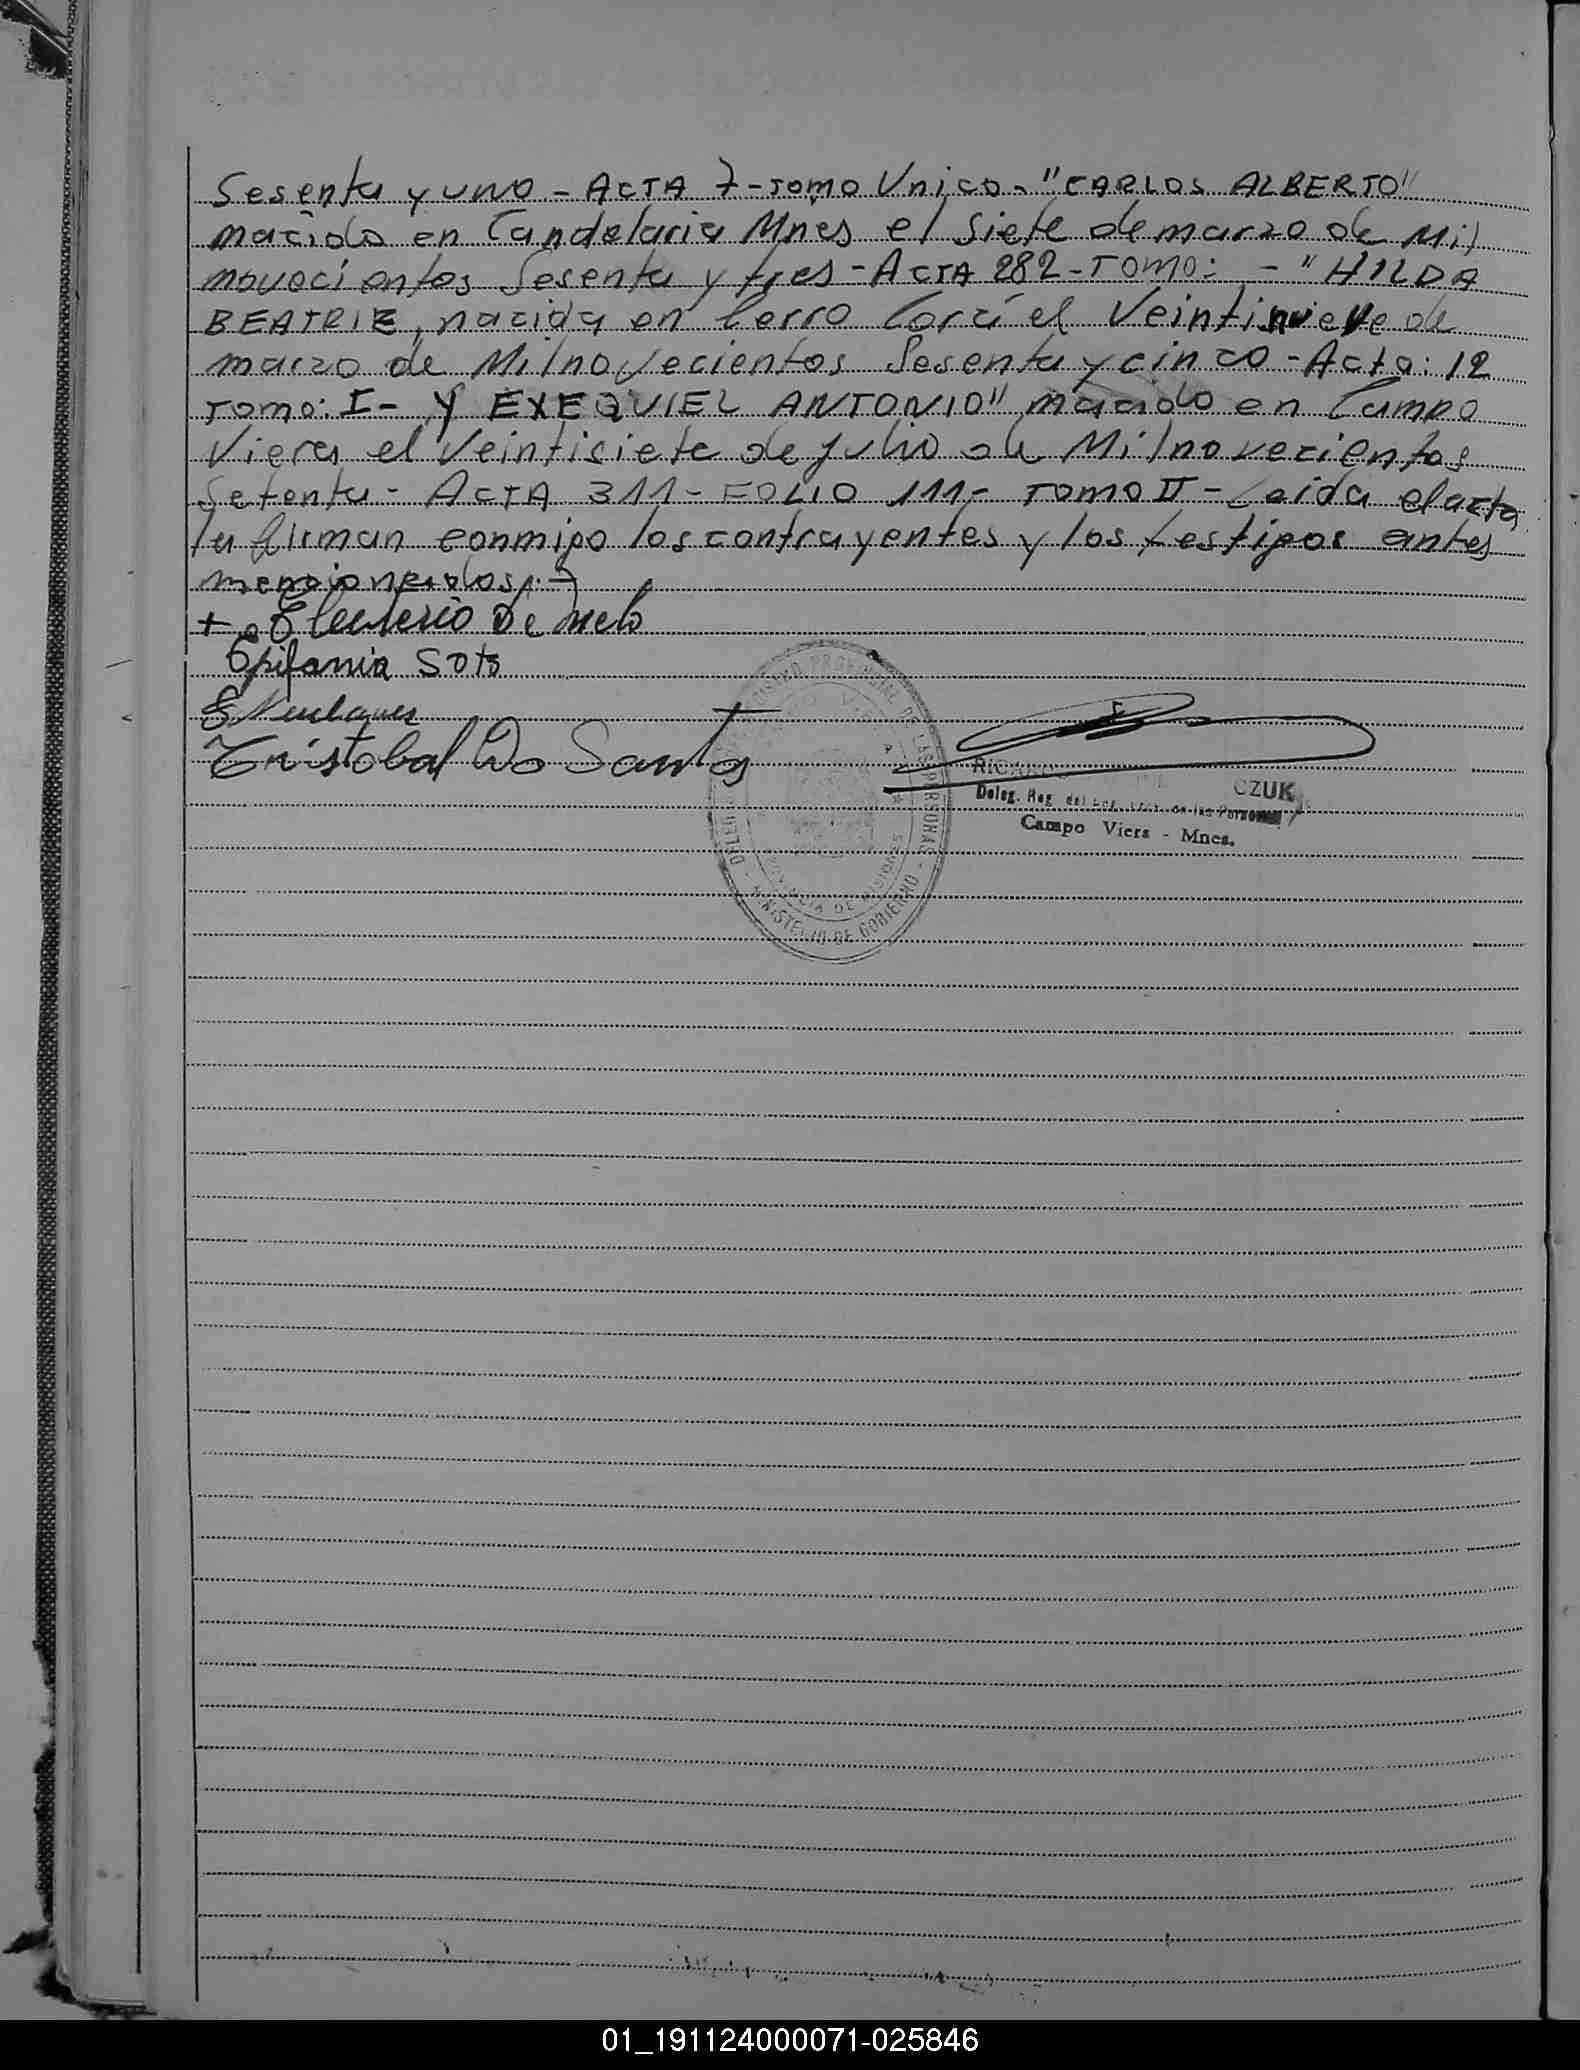 Sesenta y uno - ACTA 7 - Tomo Unico - "CARLOS ALBERTO"
nacido en Candelaria Mnes el siete de marzo de Mil
novecientos Sesenta y tres - ACTA 282 - TOMO: - "HILDA
BEATRIZ, nacida en Cerro Corá el Veintinueve de
marzo de Milnovecientos Sesenta y cinco - Acta: 12
Tomo: I - Y EXEQUIEL ANTONIO" nacido en Campo
Viera el Veintisiete de julio de Milnovecientos
Setenta - ACTA 311 - FOLIO 111 - TOMO II - Leida el acta
la firman conmigo los contrayentes y los testigos antes
mencionados.-
+ Eleuterio De Melo
Epifania Soto
Cristobal Do Santos
REGISTRO PROVINCIAL DE LAS PERSONAS - MINISTERIO DE GOBIERNO
PROVINCIA DE MISIONES
CZUK
Deleg. Reg. del de las Personas
Campo Viera - Mnes.
01_191124000071-025846